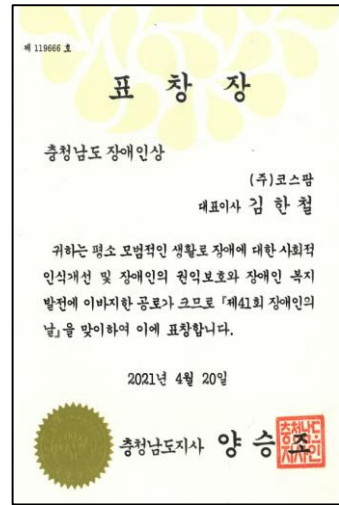 제 119666 호
표 창 장
충청남도 장애인상
(주)코스팜
대표이사 김 한 철
귀하는 평소 모범적인 생활로 장애에 대한 사회적
인식개선 및 장애인의 권익보호와 장애인 복지
발전에 이바지한 공로가 크므로 「제41회 장애인의
날」을 맞이하여 이에 표창합니다.
2021년 4월 20일
충청남도지사 양 승 조